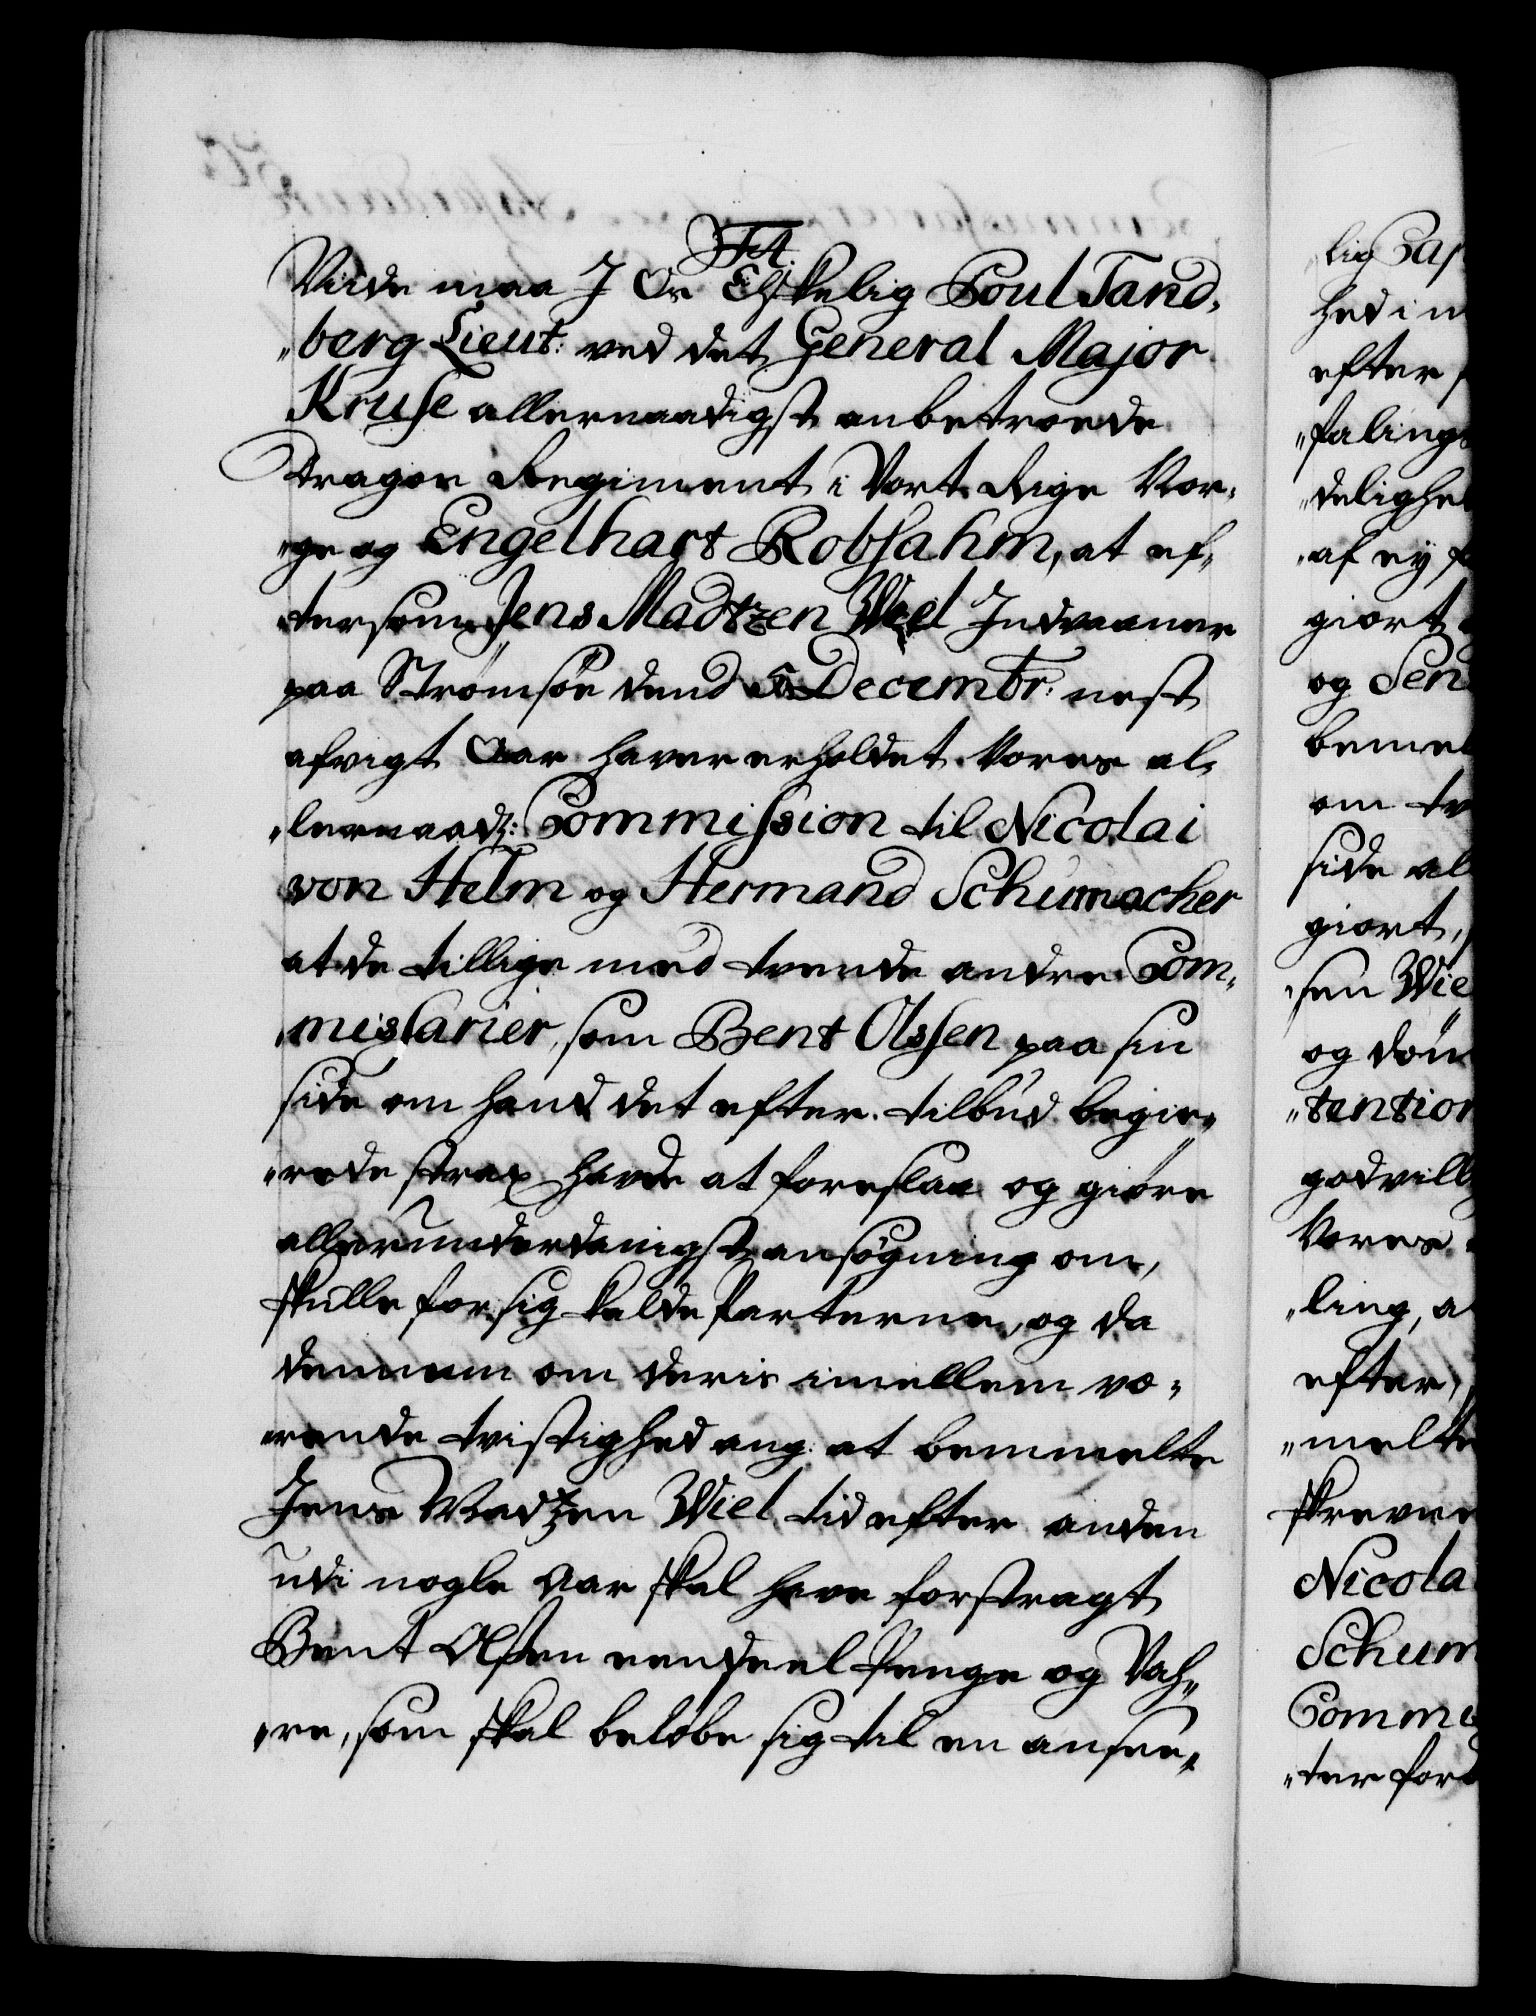 F4.
Viide maa I Os Elskelig Poul Tand„
„berg Lieut: ved det General Major
Kruse allernaadigst anbetroede
Dragon Regiment i Vort Rige Nor„
„ge og Engelhart Robsahm, at ef„
tersom Jens Madtzen Wiel Indvaaner
paa Strømsöe dend 5 Decembr: nest
afvigt Aar haver erholdet Vores al„
„lernaadg: Commission til Nicolai
von Helm og Hermand Schumacher
at de tillige med tvende andre Com„
„missarier, som Bent Olssen paa sin
side om hand det efter tilbud begie„
„rede strax hafde at foreslaa og giöre
allerunderdanigst ansögning om,
skulle for sig kalde Parterne, og da
dennem om deris imellem væ„
rende tvistighed ang: at bemmelte
Jens Madtzen Wiel tid efter anden
udi nogle Aar skal have forstragt
Bent Olssen eendeel Penge og Vah„
„re, som skal belöbe sig til en ansee„
lig Cap
hed i
efter
„falings
„delighed
af ey
giort
og Sen
bemel
om tv
side al
giort,
„sen Wie
og döm
„tention
godvillig
Vores
„ling, a
efter
„melte
skrevne
Nicola
Schum
Commi
„ter ford